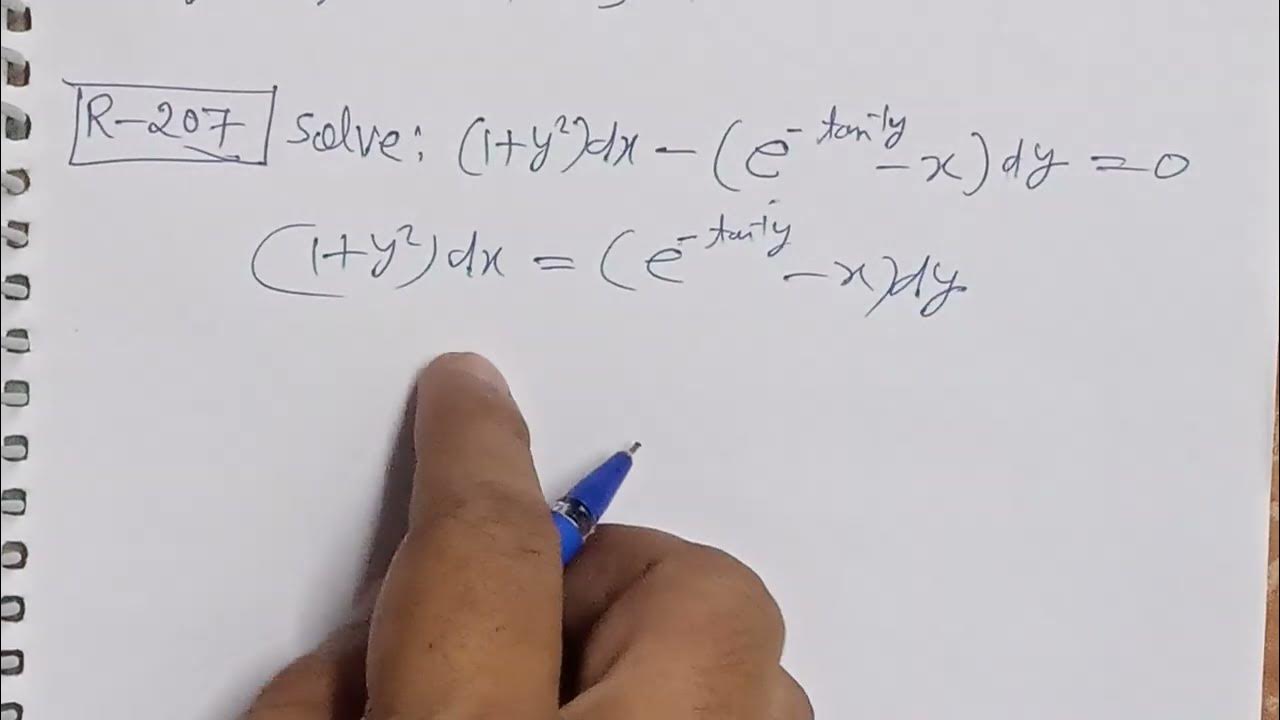 R-207 Solve: (1+y²)dx - (e^(-tan⁻¹y) - x)dy = 0
(1+y²)dx = (e^(-tan⁻¹y) - x)dy